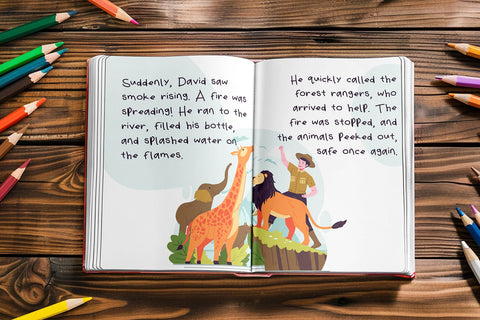 Suddenly, David saw
smoke rising. A fire was
spreading! He ran to the
river, filled his bottle,
and splashed water on
the flames.
He quickly called the
forest rangers, who
arrived to help. The
fire was stopped, and
the animals peeked out,
safe once again.